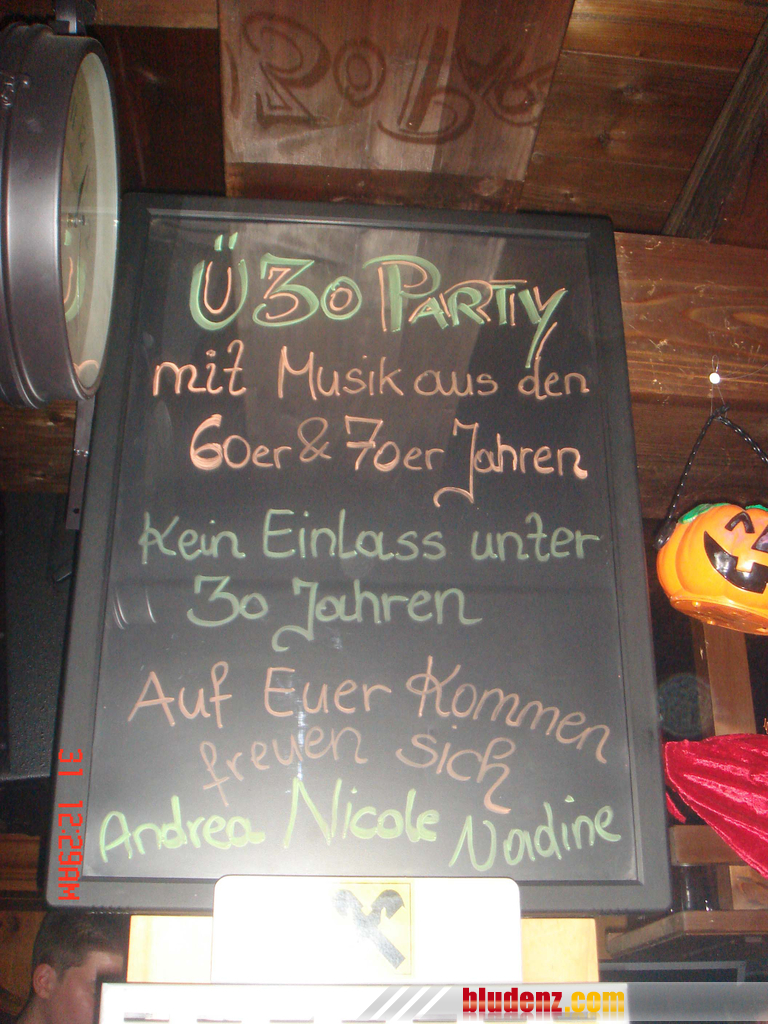 Ü30 PARTY
mit Musik aus den
60er & 70er Jahren
Kein Einlass unter
30 Jahren
Auf Euer Kommen
freuen sich
Andrea Nicole Nadine
31 12:29AM
bludenz.com